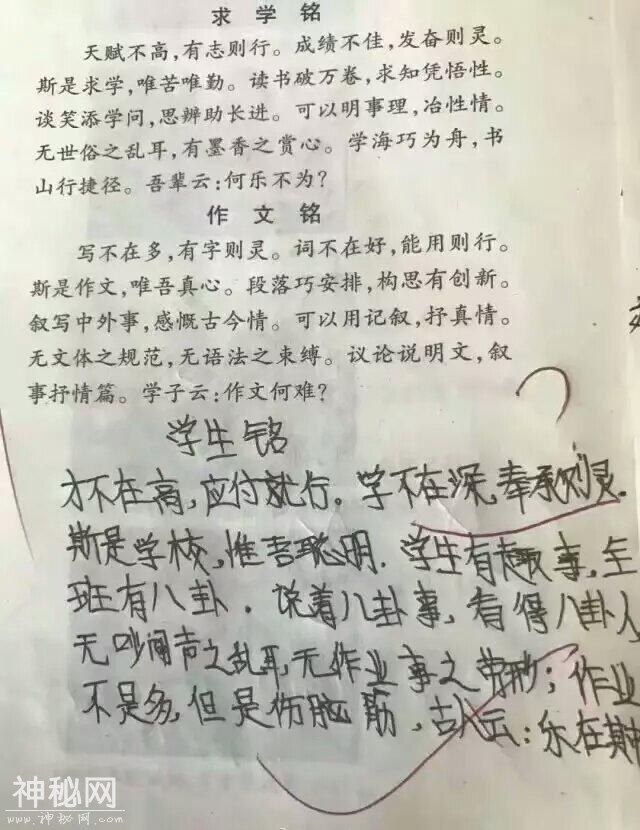 求学铭
天赋不高,有志则行。成绩不佳,发奋则灵。
斯是求学,唯苦唯勤。读书破万卷,求知凭悟性。
谈笑添学问,思辨助长进。可以明事理,冶性情。
无世俗之乱耳,有墨香之赏心。学海巧为舟,书
山行捷径。吾辈云:何乐不为?
作文铭
写不在多,有字则灵。词不在好,能用则行。
斯是作文,唯吾真心。段落巧安排,构思有创新。
叙写中外事,感慨古今情。可以用记叙,抒真情。
无文体之规范,无语法之束缚。议论说明文,叙
事抒情篇。学子云:作文何难?
学生铭
才不在高,应付就行。学不在深,奉承则灵.
斯是学校,惟吾聪明.学生有趣事,全
班有八卦.说着八卦事,看得八卦人,
无吵闹声之乱耳,无作业事之劳形;作业
不是多,但是伤脑筋,古人云:乐在其中
神秘网
www.神秘网.com